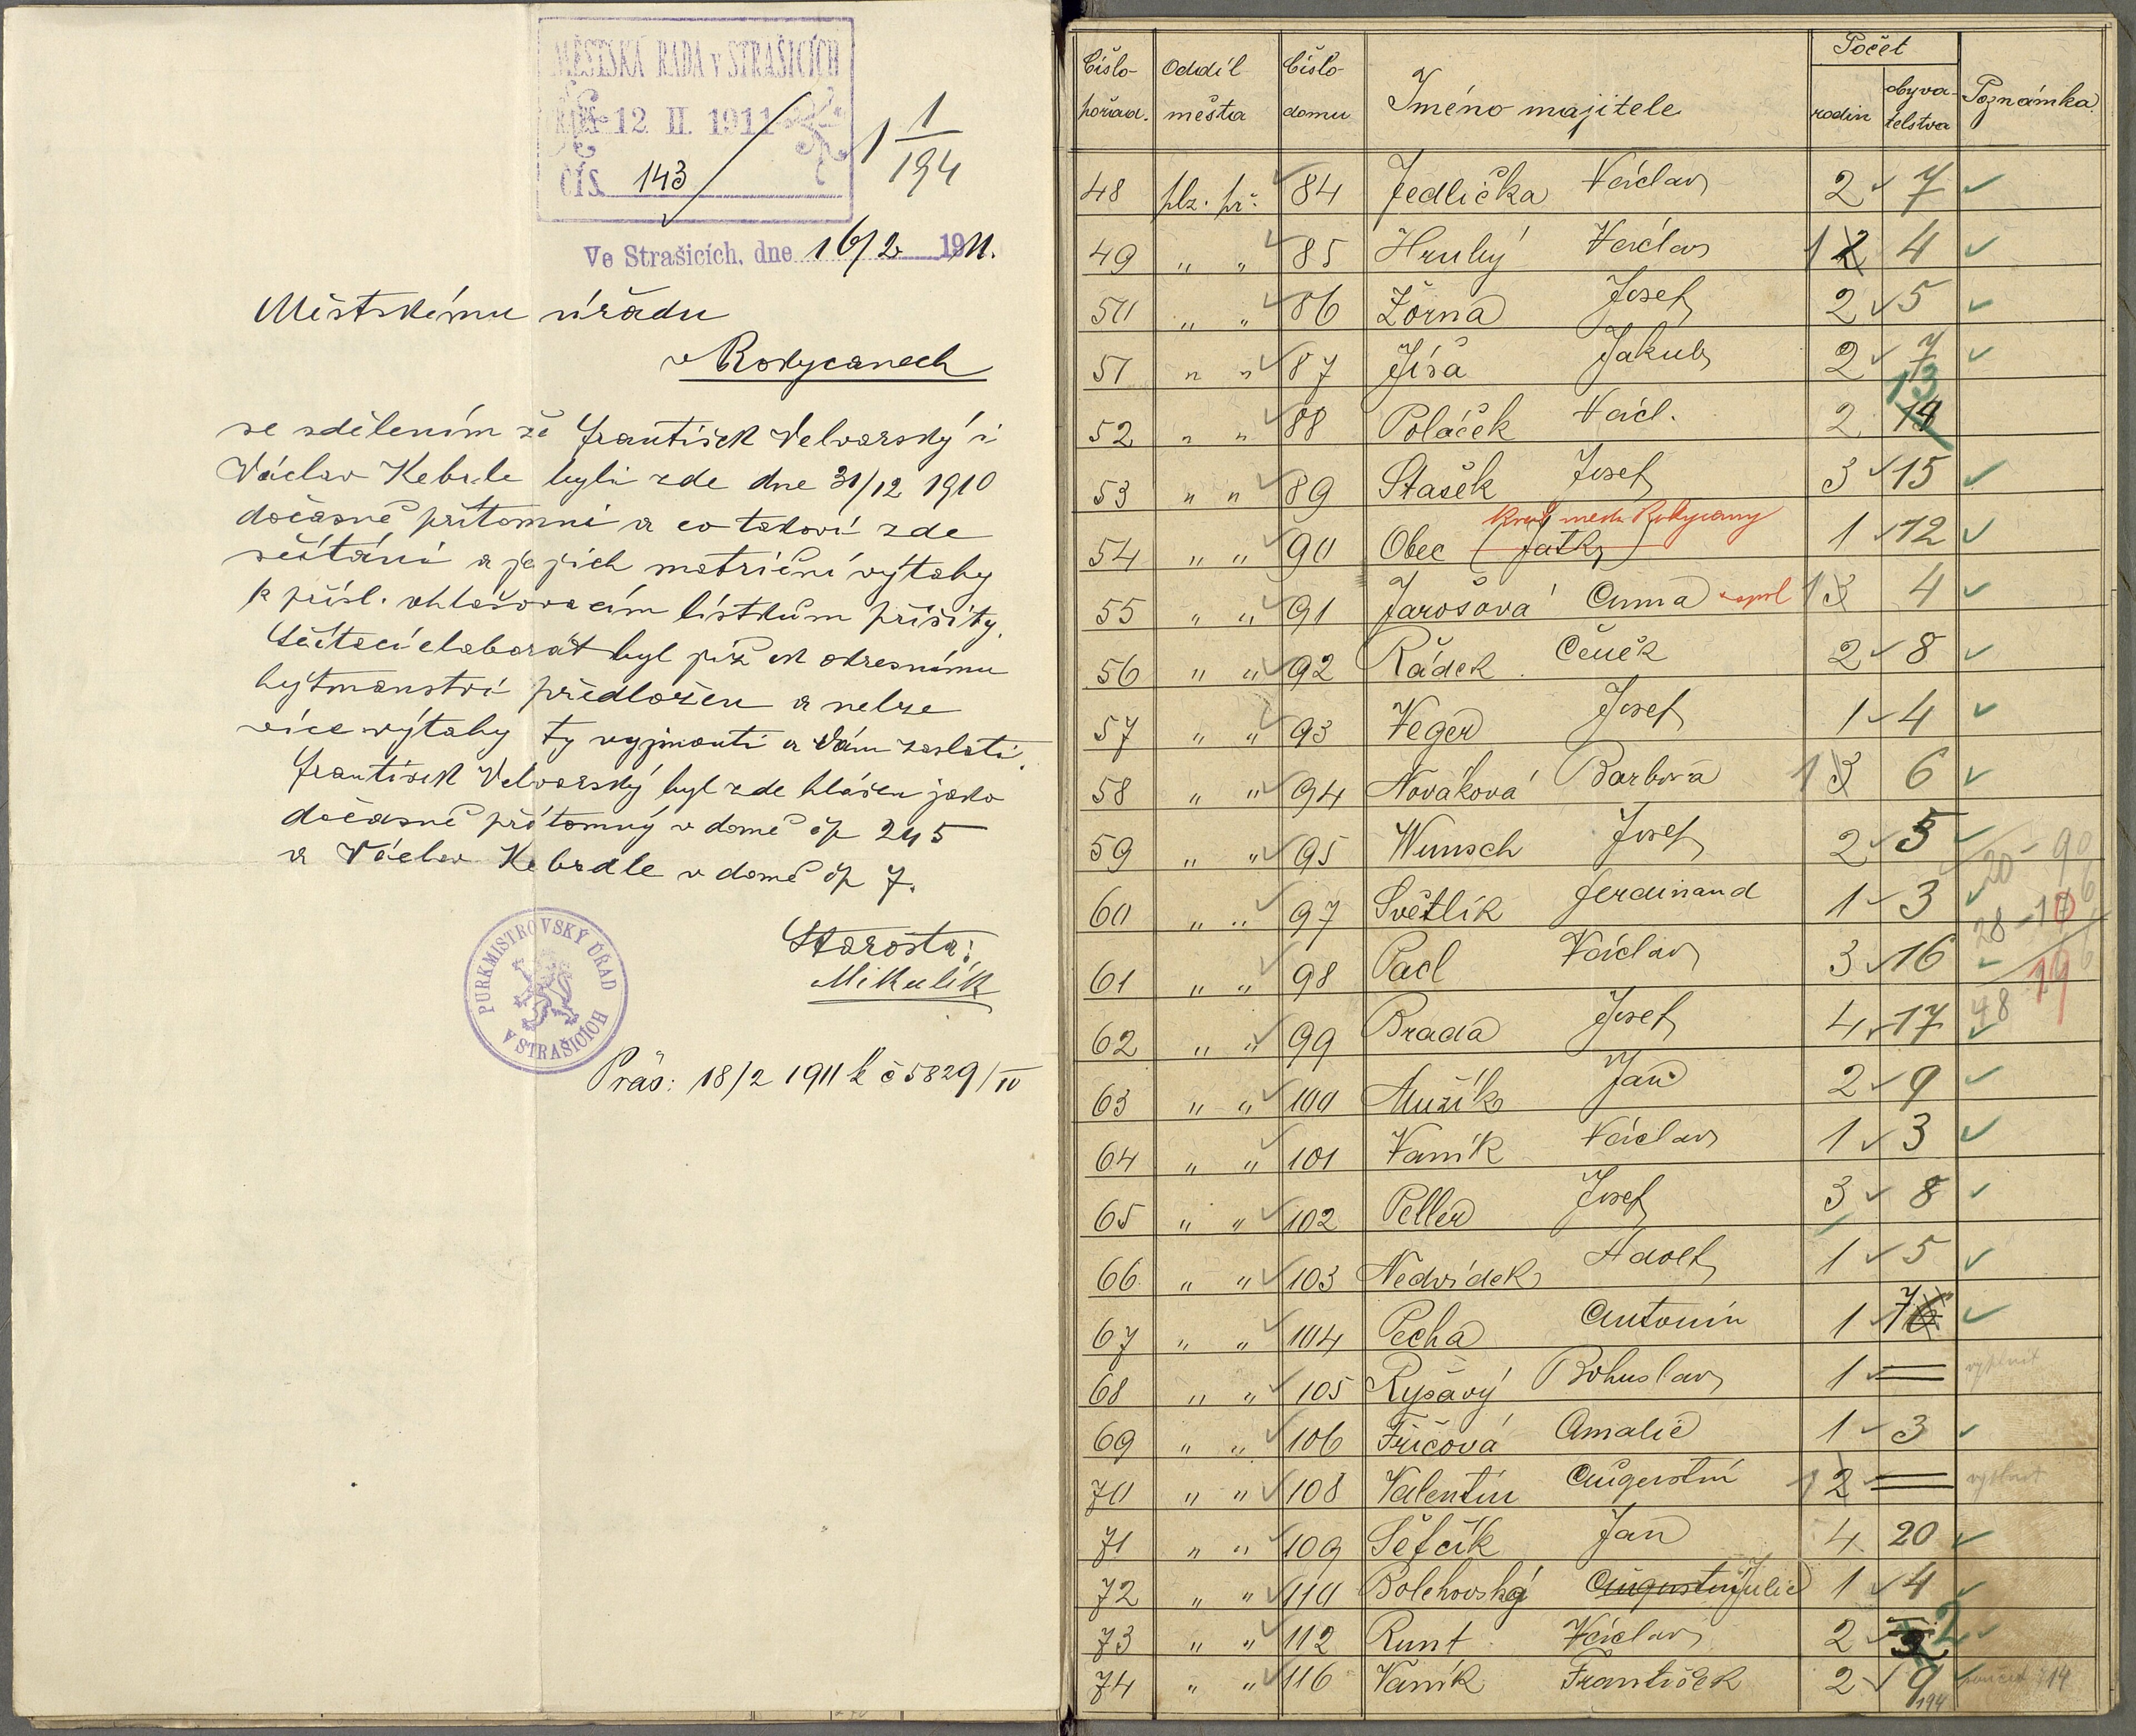 MĚSTSKÁ RADA v STRAŠICÍCH
12. II. 1911
ČÍS. 143
1 1/194
Ve Strašicích, dne 16/2 1911.
Městskému úřadu
v Rokycanech
se sdělením že František Velvarský i
Václav Kebrle byli zde dne 31/12 1910
dočasně přítomni a co takoví zde
sčítáni a jejich matriční výtahy
k přísl. ohlašovacím lístkům přišity.
Sčítací elaborát byl již ck okresnímu
hejtmanství předložen a nelze
více výtahy ty vyjmouti a Vám zaslati.
František Velvarský byl zde hlášen jako
dočasně přítomný v domě čp 245
a Václav Kebrdle v domě čp 7.
Starosta:
Mikulík
PURKMISTROVSKÝ ÚŘAD V STRAŠICÍCH
Präs: 18/2 1911 k č 5829/IV
Číslo pořad. Oddíl města Číslo domu Jméno majitele Počet rodin obyvatelstva Poznámka
48 plz. př. 84 Jedlička Václav 2 7
49 " " 85 Hrubý Václav 1 2 4
50 " " 86 Žorna Josef 2 5
51 " " 87 Jíša Jakub 2 7
52 " " 88 Poláček Václ. 2 14 13
53 " " 89 Stašek Josef 3 15
54 " " 90 Obec (Jatky) Rokycany 1 12
55 " " 91 Jarošová Anna a spol 1 3 4
56 " " 92 Rádek Čeněk 2 8
57 " " 93 Veger Josef 1 4
58 " " 94 Nováková Barbora 1 3 6
59 " " 95 Wunsch Josef 2 5
60 " " 97 Světlík Ferdinand 1 3
61 " " 98 Pacl Václav 3 16
62 " " 99 Brada Josef 4 17
63 " " 100 Mužík Jan 2 9
64 " " 101 Vaník Václav 1 3
65 " " 102 Peller Josef 3 8
66 " " 103 Nedvídek Adolf 1 5
67 " " 104 Pecha Antonín 1 7
68 " " 105 Ryšavý Bohuslav 1 = vyplnit
69 " " 106 Fričová Amalie 1 3
70 " " 108 Valentin Augustin 1 2 = vyplnit
71 " " 109 Šefčík Jan 4 20
72 " " 110 Bolehovská Augustin Julie 1 4
73 " " 112 Runt Václav 2 2
74 " " 116 Vaník František 2 9
194